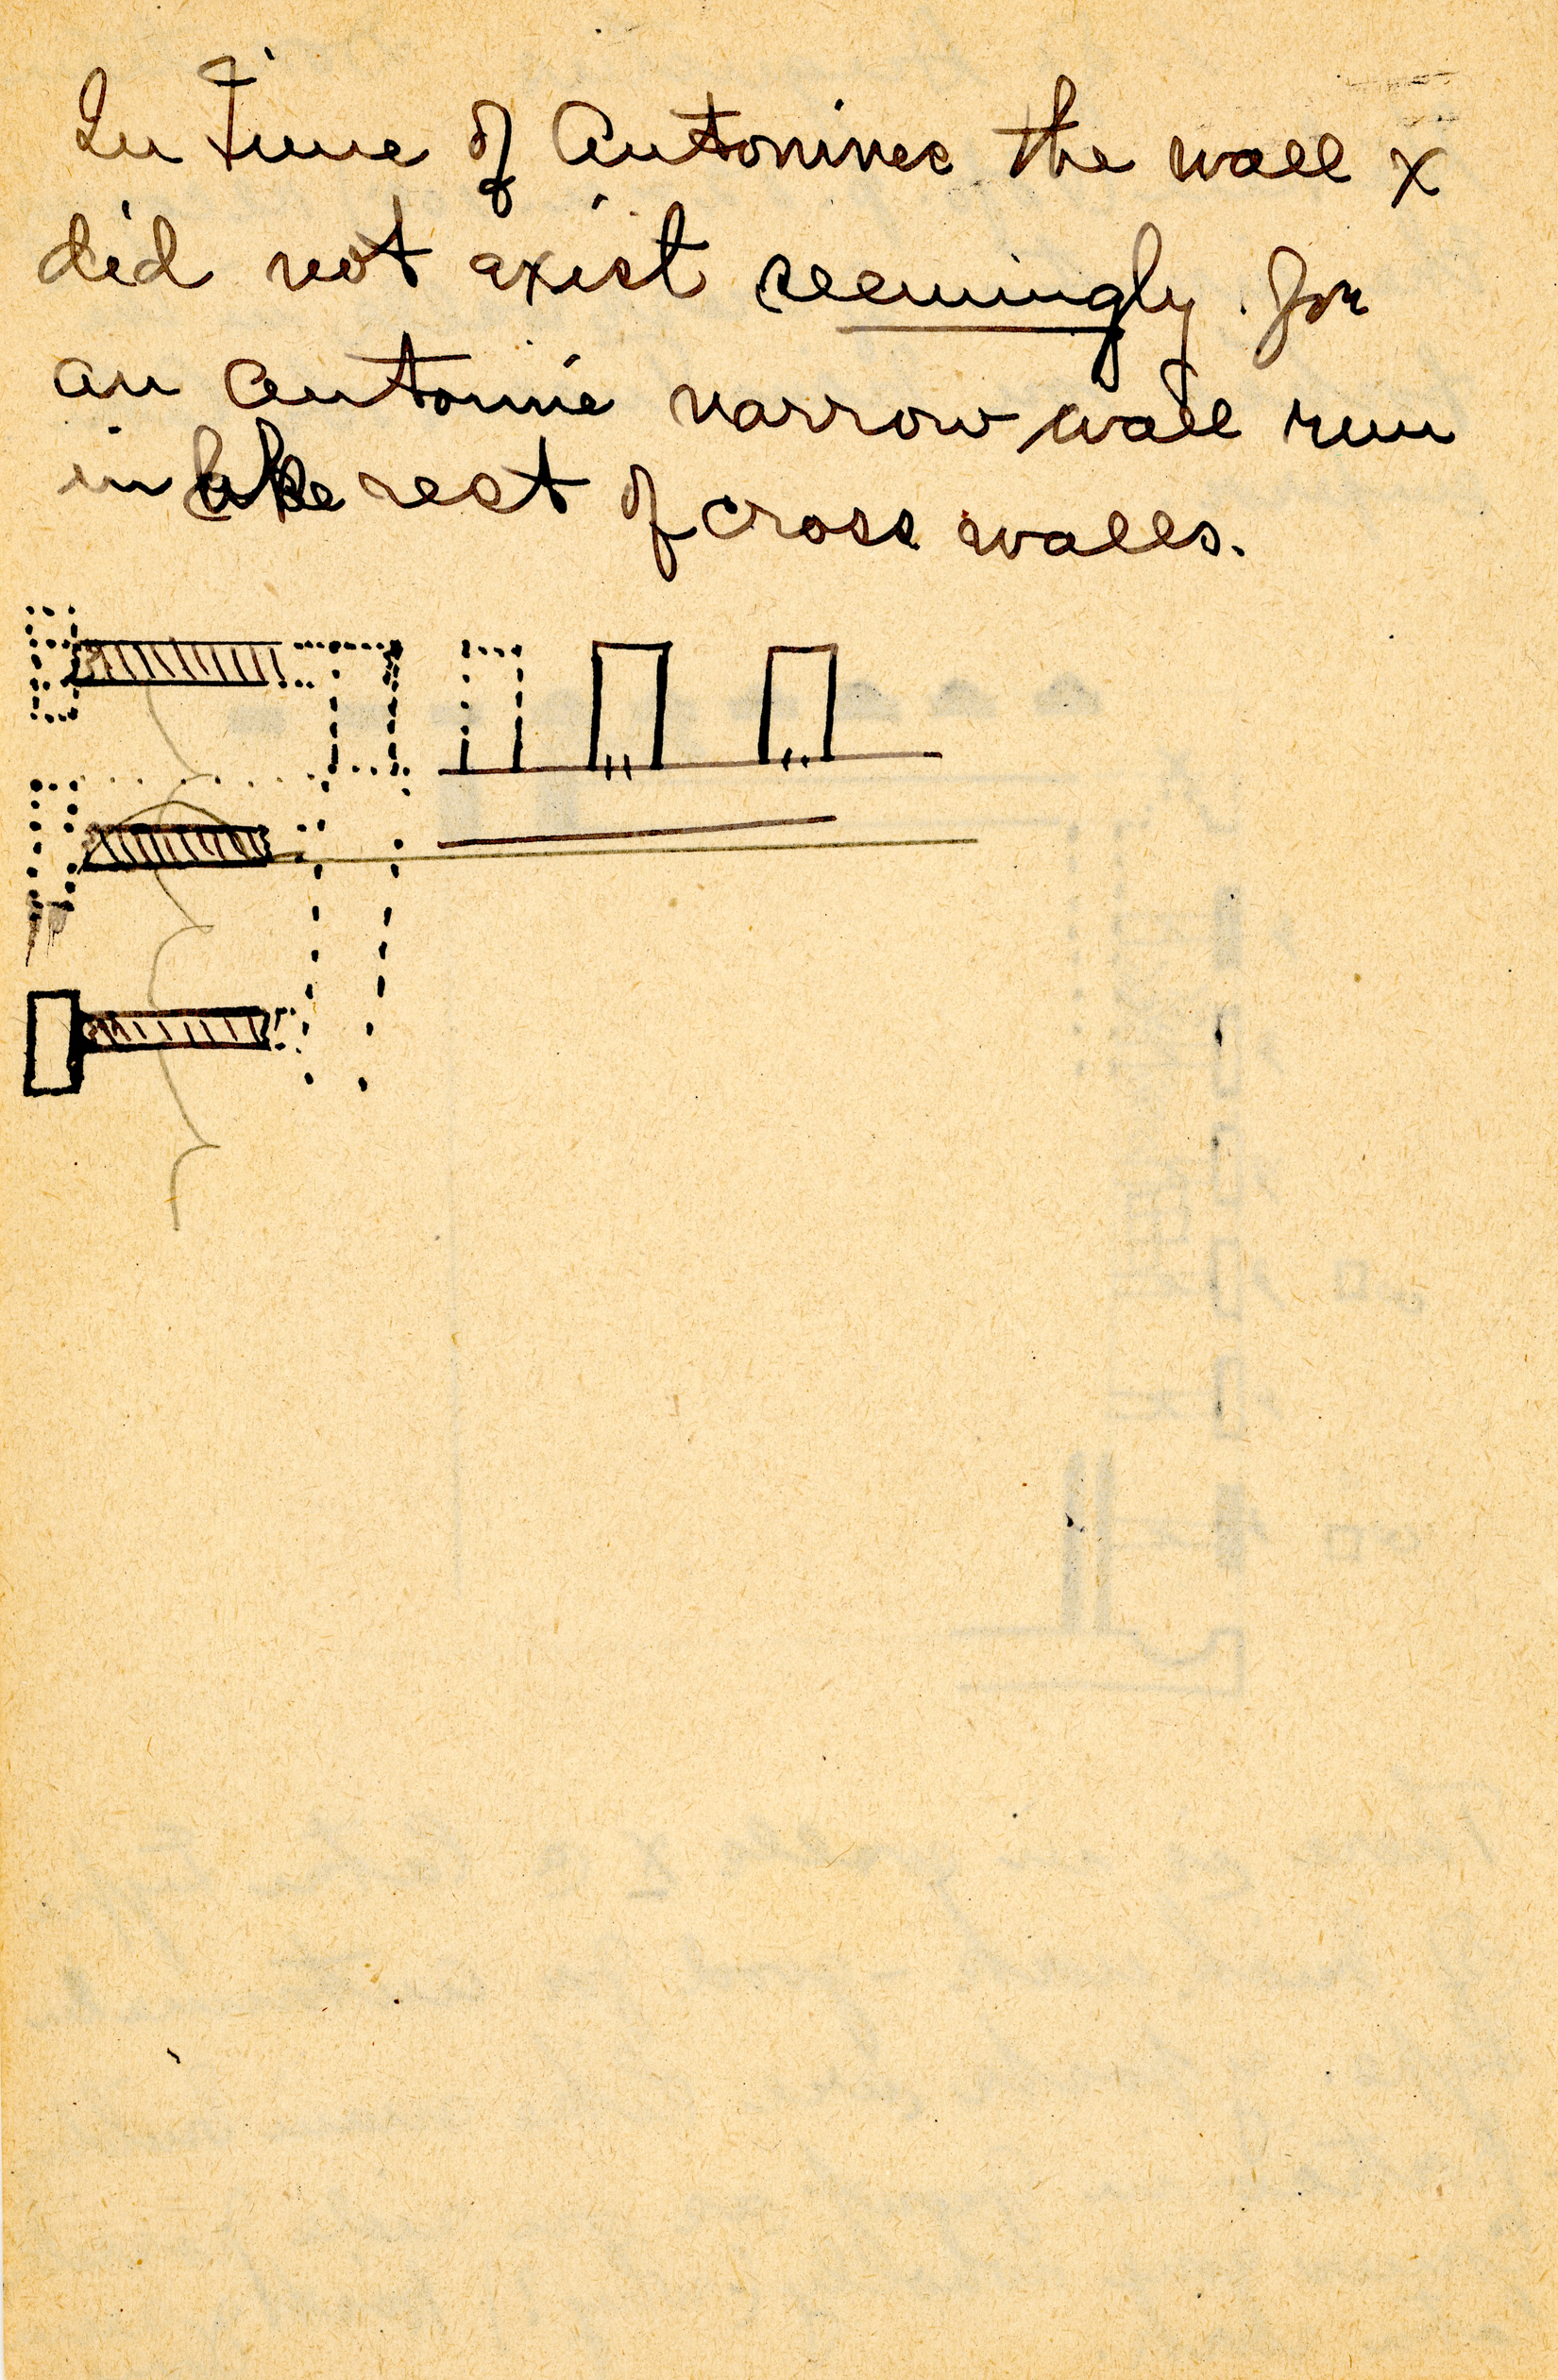 In Time of Antonines the wall x
did not exist seemingly. for
an Antonine narrow wall run
in like rest of cross walls.